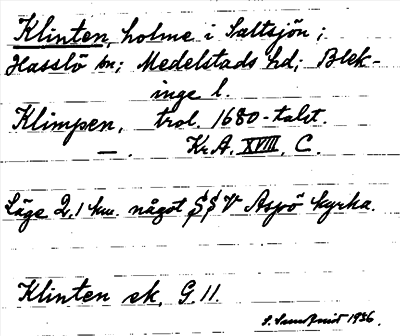 Klinten, holme i Saltsjön;
Hasslö sn; Medelstads hd; Blek-
inge l.
Klimpen, trol. 1680-talet.
—. Kr.A. XVIII, C.
Läge 2,1 km. något S§V Aspö kyrka.
Klinten ek, G.11.
1936.